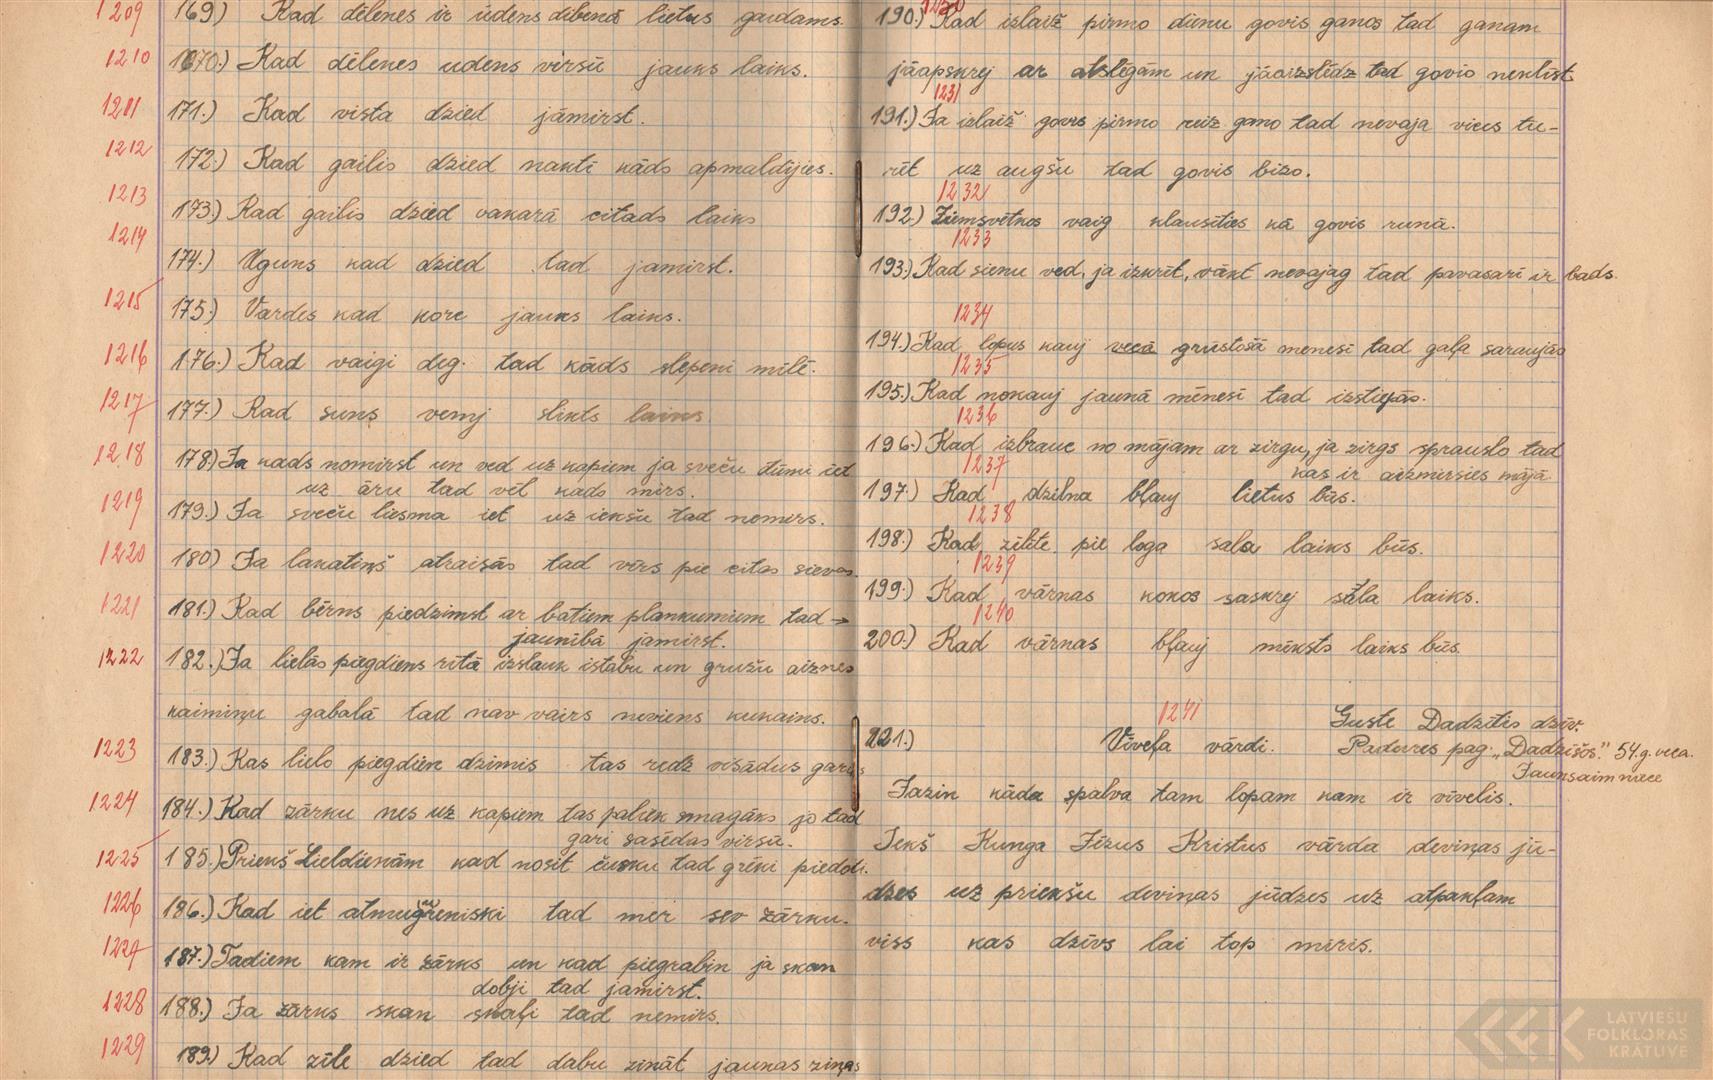 1209 169.) Kad dēlenes ir ūdens dibenā lietus gaidams.
1210 170.) Kad dēlenes udens virsū jauks laiks.
1211 171.) Kad vista dzied jāmirst.
1212 172.) Kad gailis dzied naktī kāds apmaldījies.
1213 173.) Kad gailis dzied vakarā citads laiks
1214 174.) Uguns kad dzied tad jamirst.
1215 175.) Vardes kad kore jauks laiks.
1216 176.) Kad vaigi deg. tad kāds slepeni mīlē.
1217 177.) Kad suns vemj slikts laiks.
1218 178.) Ja kads nomirst un ved uz kapiem ja sveču dūmi iet
uz āru tad vēl kads mirs.
1219 179.) Ja sveču liesma iet uz iekšu tad nemirs.
1220 180) Ja lakatiņš atraisās tad vīrs pie citas sievas.
1221 181.) Kad bērns piedzimst ar batiem plankumiem tad →
jaunībā jamirst.
1222 182.) Ja lielās piegdiens rītā izslauk istabu un gružu aiznes
kaimiņu gabalā tad nav vairs neviens kukains.
1223 183.) Kas lielo piegdien dzimis tas redz visādus garus
1224 184.) Kad zārku nes uz kapiem tas paliek smagāks jo tad
gari sasēdas virsū.
1225 185.) Priekš Lieldienām kad nosit čusku tad grēki piedoti.
1226 186.) Kad iet atmugureniski tad mēr sev zārku.
1227 187.) Tadiem kam ir zārks un kad piegrabin ja skan
dobji tad jamirst.
1228 188.) Ja zārks skan skaļi tad nemirs.
1229 189.) Kad zīle dzied tad dabu zināt jaunas ziņas
1230
190.) Kad izlaiž pirmo dienu govis ganos tad ganam
jāapskrej ar atslēgām un jāaizslēdz tad govis neklīst
1231
191.) Ja izlaiž govis pirmo reiz gano tad nevaja vices tu-
rēt uz augšu tad govis bizo.
1232
192.) Ziemsvētkos vaig klausīties kā govis runā.
1233
193.) Kad sienu ved, ja izkrīt, vākt nevajag tad pavasarī ir bads.
1234
194.) Kad lopus kauj vecā grustošā mēnesī tad gaļa saraujās
1235
195.) Kad nokauj jaunā mēnesī tad izstiepās.
1236
196.) Kad izbrauc no mājam ar zirgu, ja zirgs sprauslo tad
kas ir aizmirsies mājā.
1237
197.) Kad dzilna bļauj lietus būs.
1238
198.) Kad zīlīte pie loga sala laiks būs.
1239
199.) Kad vārnas kokos saskrej sala laiks.
1240
200.) Kad vārnas bļauj mīksts laiks būs.
1241
Guste Dadzītis dzīv.
221.) Vīveļa vārdi. Padures pag. „Dadzišos." 54. g. veca.
Jaunsaimniece
Jazin kāda spalva tam lopam kam ir vīvelis.
Iekš Kunga Jēzus Kristus vārda deviņas jū-
dzes uz priekšu deviņas jūdzes uz atpakļam
viss kas dzīvs lai top miris.
LATVIEŠU
FOLKLORAS
KRĀTUVE